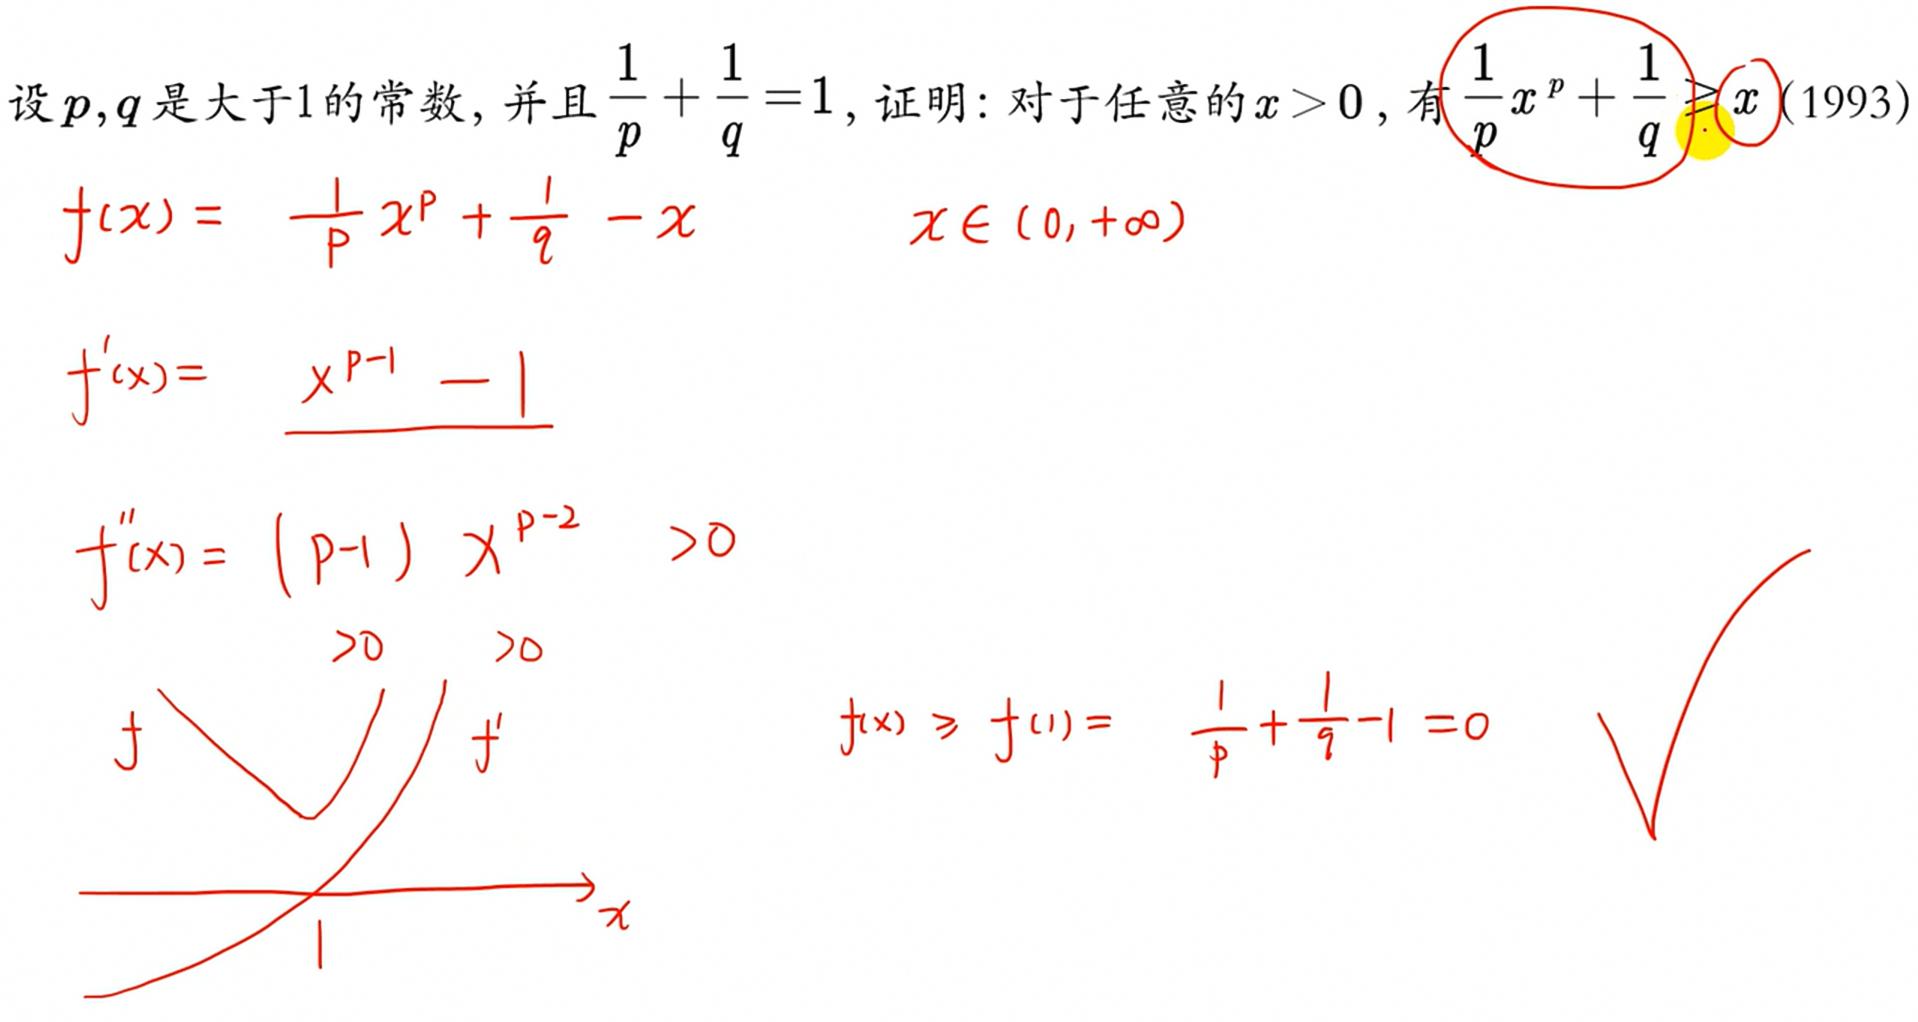 设p,q是大于1的常数, 并且 1/p + 1/q = 1, 证明: 对于任意的x > 0, 有 1/p x^p + 1/q ≥ x (1993)
f(x) = 1/p x^p + 1/q - x x ∈ (0, +∞)
f'(x) = x^(p-1) - 1
f''(x) = (p-1) x^(p-2) >0
>0 >0
f f' f(x) ≥ f(1) = 1/p + 1/q - 1 = 0
x
1